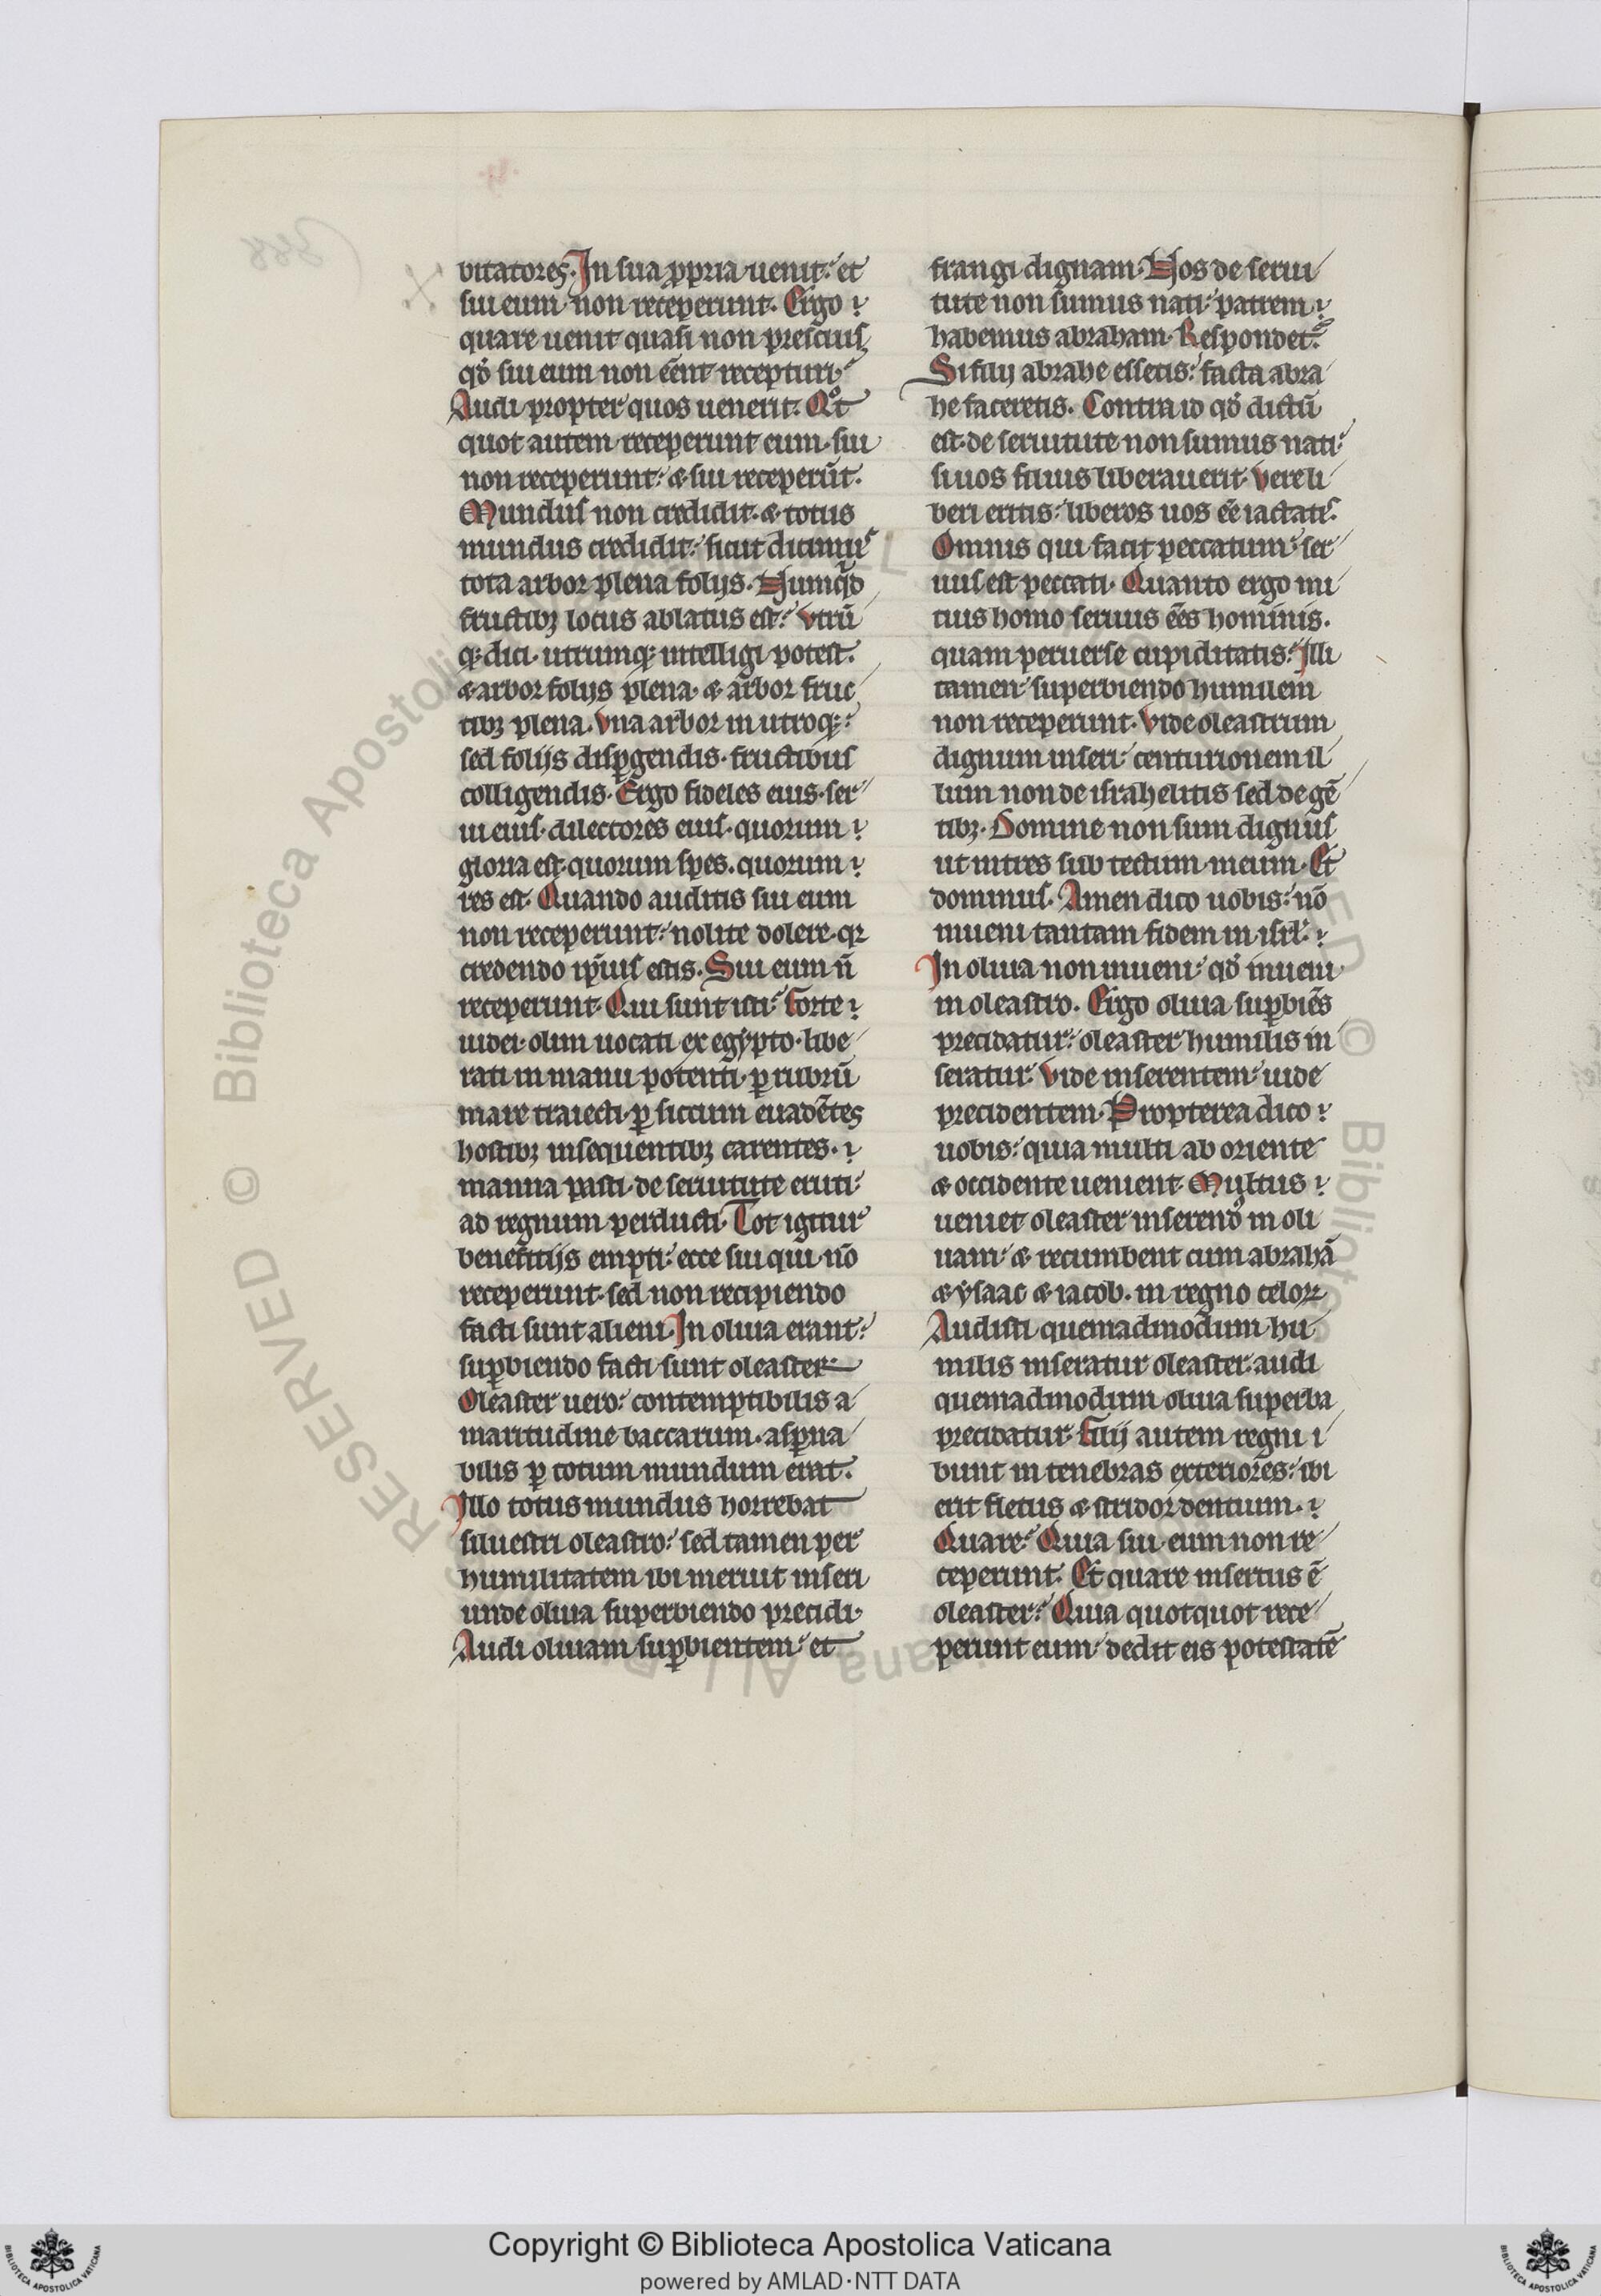 bitatores. In sua ꝓpria uenit: et
sui eum non receperunt. Ergo
quare uenit quasi non prescius
qđ sui eum non eēnt recepturi:
Audi propter quos uenerit. Qͦt
quot autem receperunt eum. sui
non receperunt: & sui receperūt.
Mundus non credidit. & totus
mundus credidit: sicut dicimus
tota arbor plena folijs. Numqͥd
fructibꝫ locus ablatus est: Vtrū
qꝫ dici. utrumqꝫ intelligi potest.
& arbor folijs plena. & arbor fruc
tibꝫ plena. Vna arbor in utroqꝫ:
sed folijs disꝑgendis. fructibus
colligendis. Ergo fideles eius. ser
ui eius. dilectores eius. quorum
gloria est. quorum spes. quorum
res est. Quando auditis sui eum
non receperunt: nolite dolere. qꝛ
credendo ip̄ius estis. Sui eum n̄
receperunt. Qui sunt isti: Forte
iudei. olim uocati ex egypto. libe
rati in manu potenti. ꝑ rubrū
mare traiecti. ꝑ siccum euadētes
hostibꝫ insequentibꝫ carentes.
manna pasti. de seruitute eruti.
ad regnum perducti. Tot igitur
beneficijs empti: ecce sui qui nō
receperunt. sed non recipiendo
facti sunt alieni. In oliua erant:
suꝑbiendo facti sunt oleaster.
Oleaster uero: contemptibilis a
maritudine baccarum. asꝑna
bilis ꝑ totum mundum erat.
Illo totus mundus horrebat
siluestri oleastro: sed tamen per
humilitatem ibi meruit inseri
unde oliua superbiendo precidi.
Audi oliuam suꝑbientem: et
frangi dignam. Nos de serui
tute non sumus nati: patrem
habemus abraham. Respondet:
Si filij abrahe essetis: facta abra
he faceretis. Contra id qđ dictū
est. de seruitute non sumus nati:
si uos filius liberauerit. Vere li
beri eritis: liberos uos eē iactatis.
Omnis qui facit peccatum: ser
uus est peccati. Quanto ergo mi
tius homo seruus eēs hominis.
quam peruerse cupiditatis: Illi
tamen superbiendo humilem
non receperunt. Vide oleastrum
dignum inseri: centurionem il
lum non de israhelitis sed de gē
tibꝫ. Domine non sum dignus
ut intres sub tectum meum. Et
dominus. Amen dico uobis: nō
inueni tantam fidem in isrl̄.
In oliua non inueni: qđ inueni
in oleastro. Ergo oliua suꝑbiēs
precidatur: oleaster humilis in
seratur. Vide inserentem: uide
precidentem. Propterea dico
uobis: quia multi ab oriente
& occidente uenient. Multus
ueniet oleaster inserendͦ in oli
uam: & recumbent cum abrahā
& ysaac & iacob. in regno celoꝝ
Audisti quemadmodum hu
milis inseratur oleaster: audi
quemadmodum oliua superba
precidatur. Filij autem regni i
bunt in tenebras exteriores: ibi
erit fletus & stridor dentium.
Quare: Quia sui eum non re
ceperunt. Et quare insertus ē
oleaster: Quia quotquot rece
perunt eum: dedit eis potestatē
Copyright © Biblioteca Apostolica Vaticana
powered by AMLAD·NTT DATA